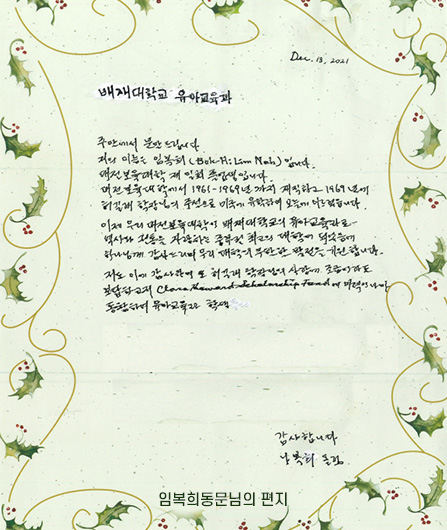 Dec. 13, 2021
배재대학교 유아교육과
주안에서 문안드립니다.
저의 이름은 임복희 (Bok-Hi Lim Nah) 입니다.
대전보육대학 제 일회 졸업생입니다.
대전보육대학에서 1961-1969년까지 재직하고 1969년에
허길래 학장님의 주선으로 미국에 유학하여 오늘에 이르렀습니다.
이제 우리 대전보육대학이 배재대학교의 유아교육과로
역사와 전통을 자랑하는 중부권 최고의 대학이 되었음에
하나님께 감사드리며 우리 대학의 무한한 발전을 기원합니다.
저도 이에 감사하며 또 허길래 학장님의 사랑에 조금이라도
보답하고저 Clara Howard Scholarship Fund에 미력이나마
동참하여 유아교육과 학생
감사합니다
나복희 드림
임복희동문님의 편지